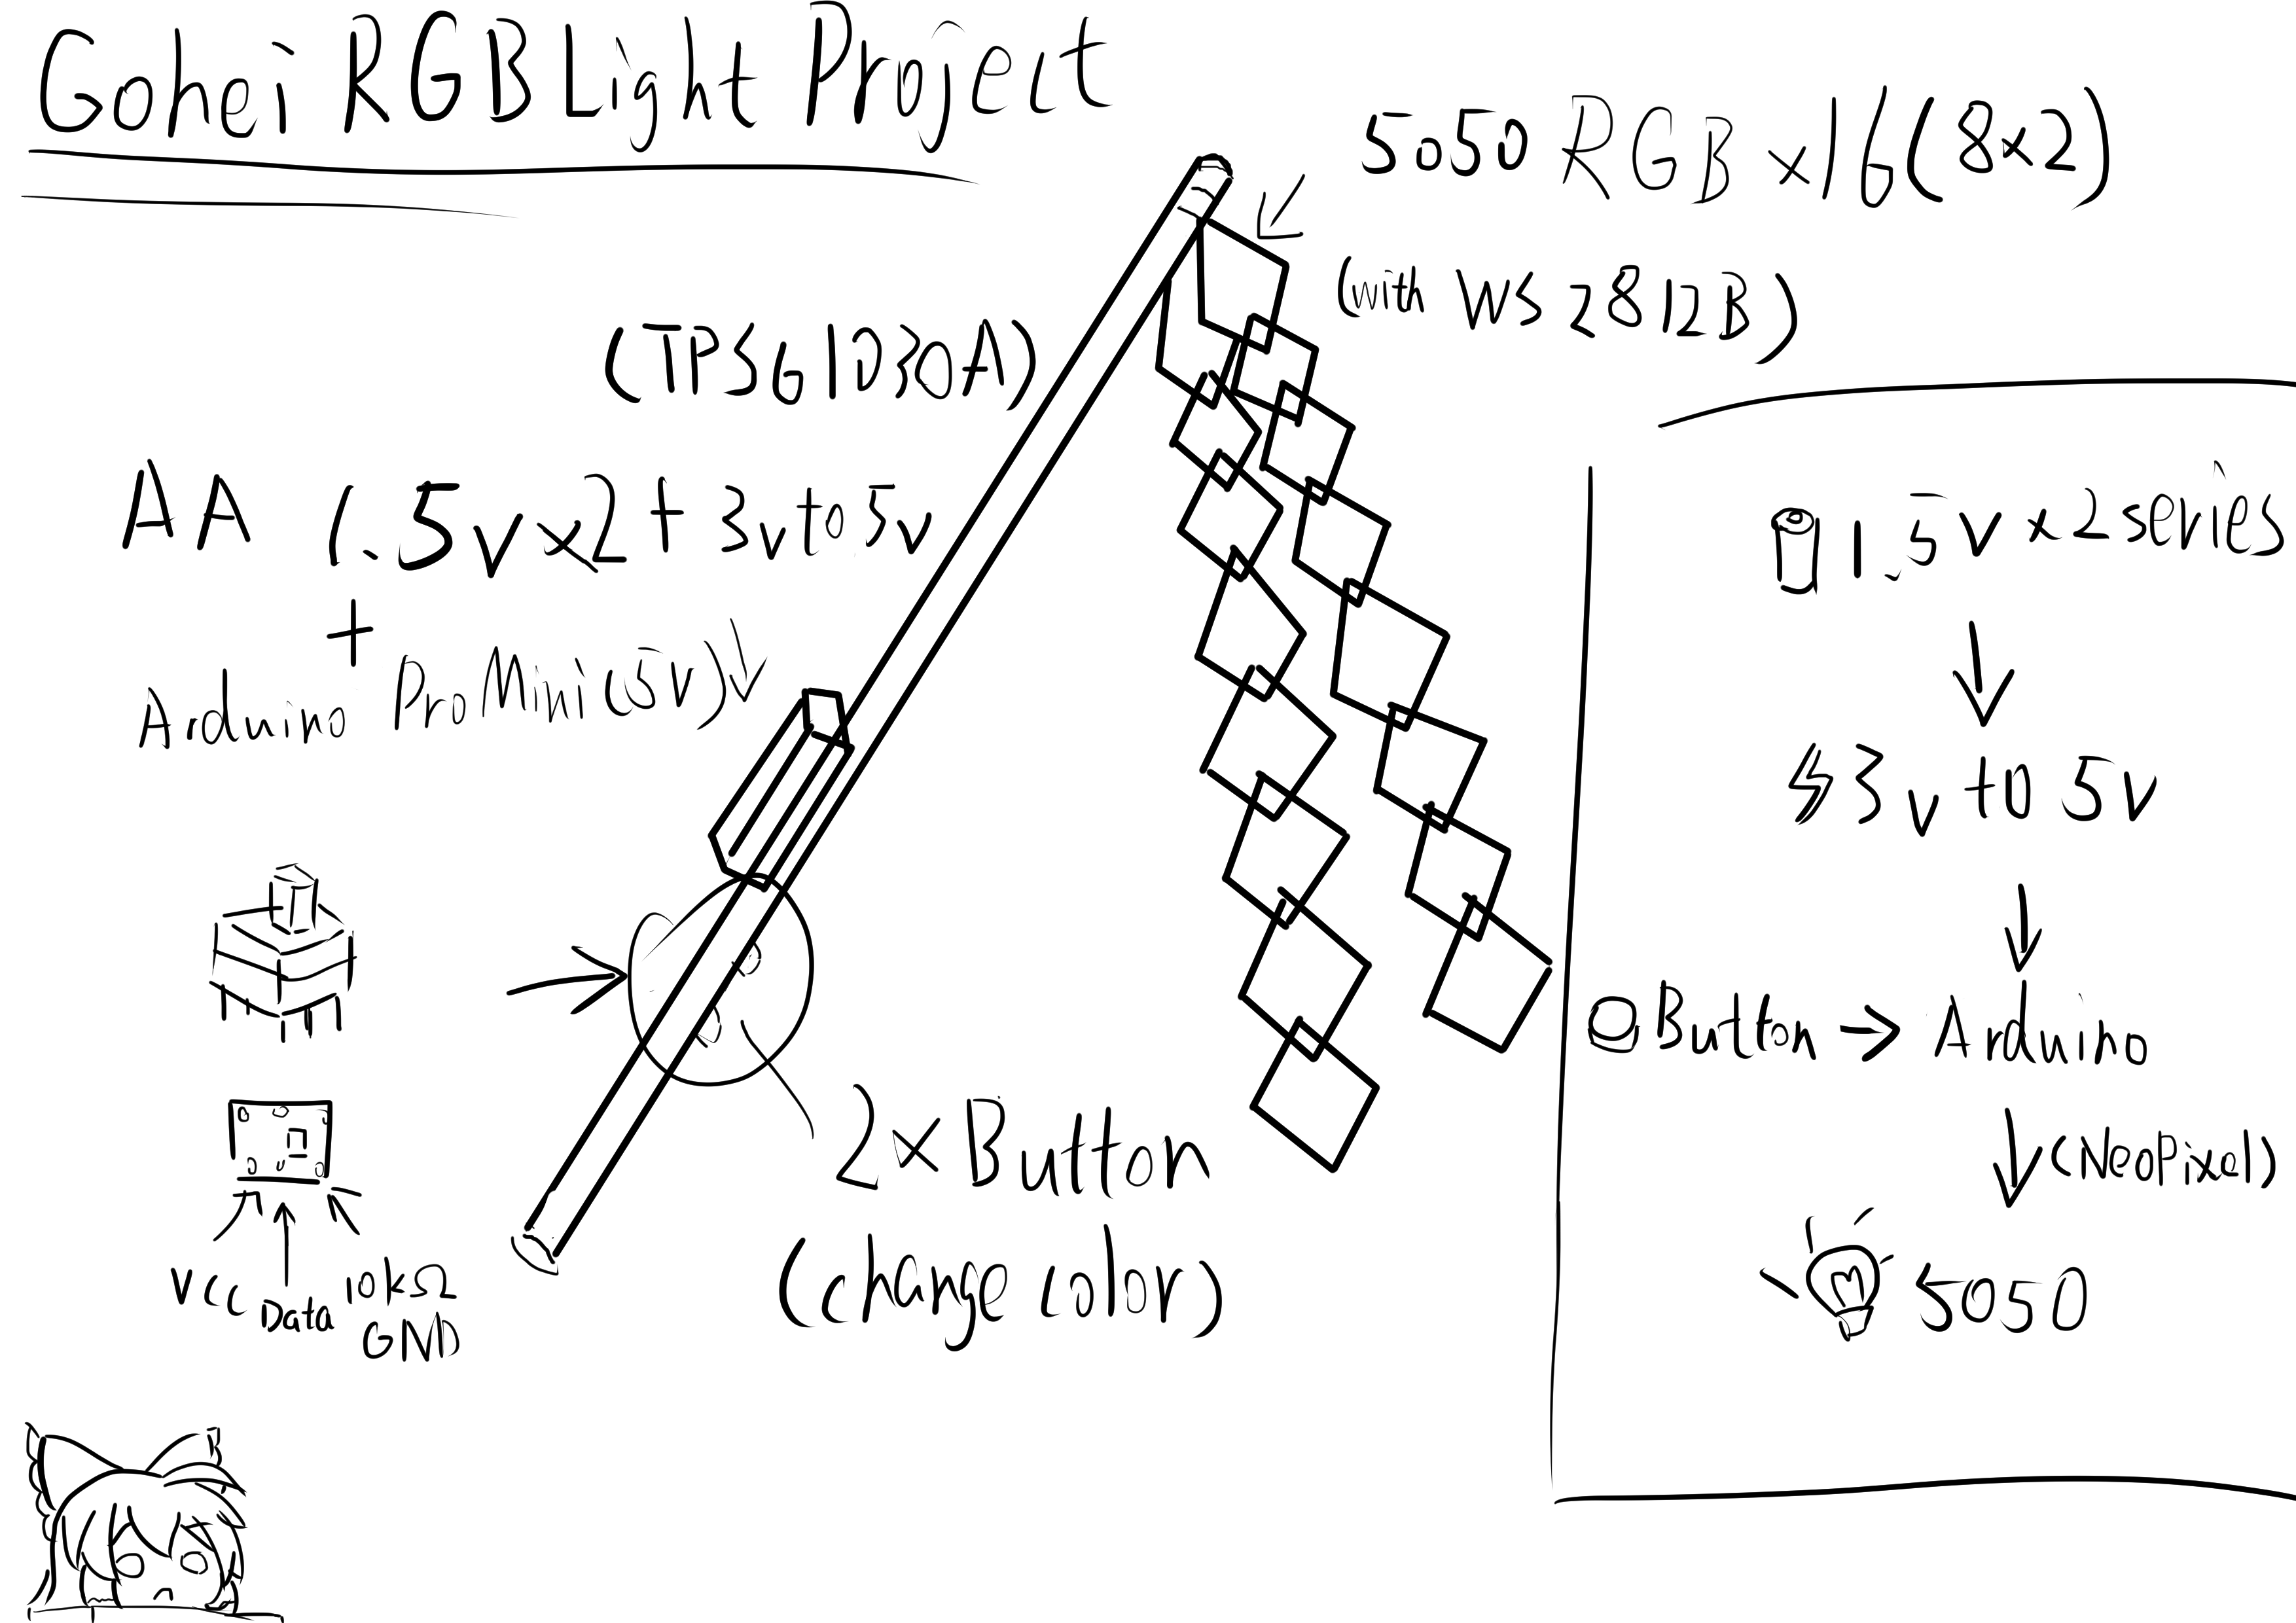 Gohei RGB Light Project
5050 RGB x16(8x2)
(with WS2812B)
(TPS61030A)
AA 1.5v x2 + 3v to 5v
+
Arduino Pro Mini (5V)
2x Button
(change color)
Vcc Data 10kΩ
GND
1.5v x2 series
3v to 5v
Button → Arduino
(NeoPixel)
5050